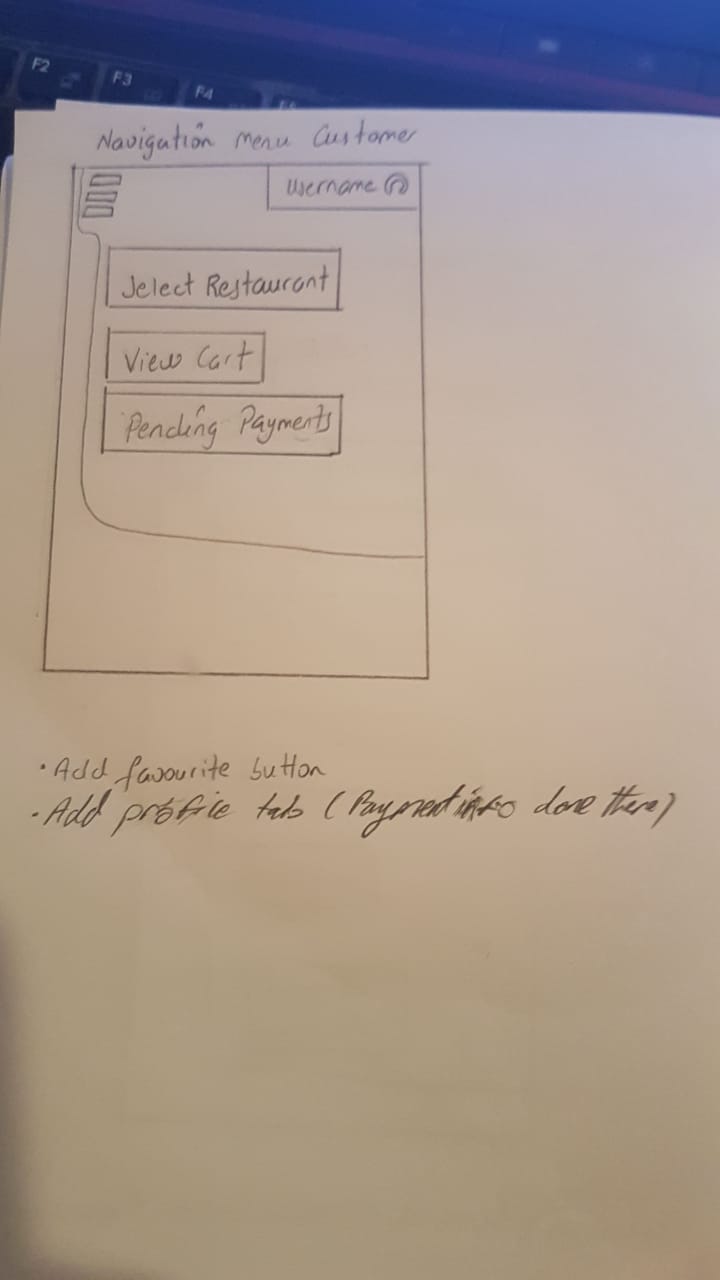 F2
F3
F4
Navigation menu Customer
Username
Select Restaurant
View Cart
Pending Payments
• Add favourite button
• Add profile tab (Payment info done there)